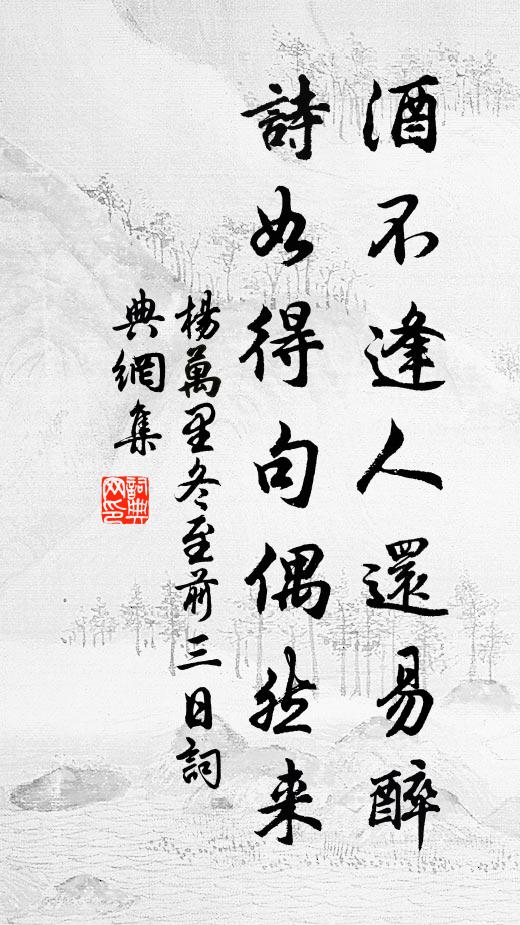 酒不逢人還易醉
詩如得句偶然來
楊萬里冬至前三日詞
典網集
詞典网印